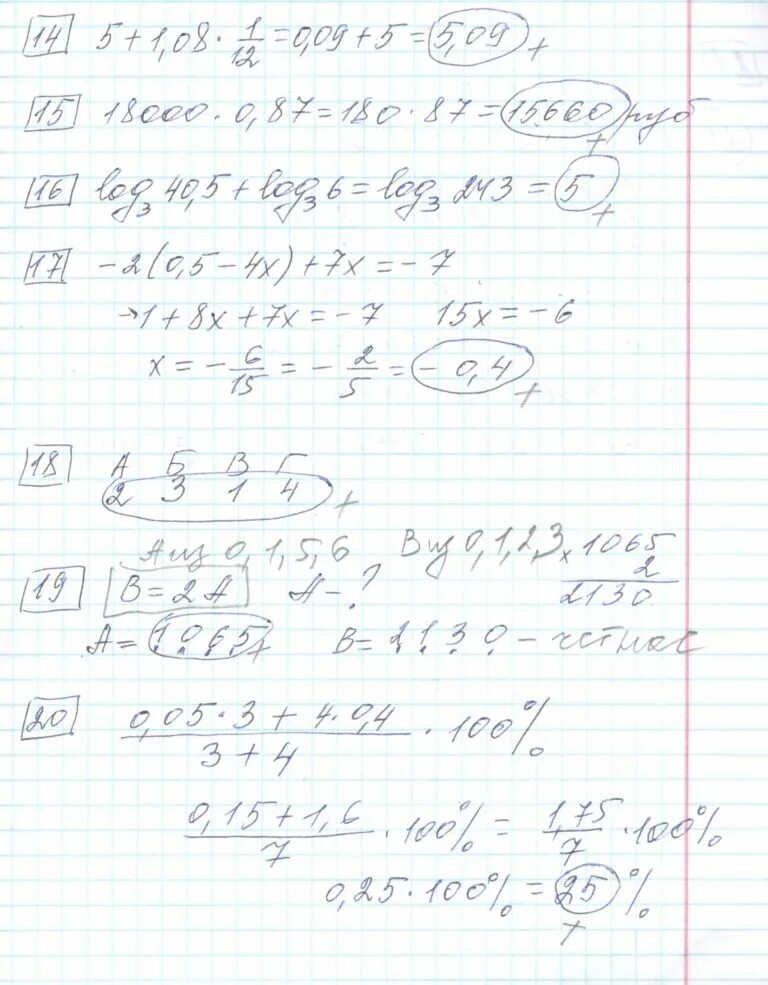 14 5+1,08·1/12=0,09+5=5,09 +
15 18000·0,87=180·87=15660 руб +
16 log₃40,5+log₃6=log₃243=5 +
17 -2(0,5-4x)+7x=-7
-1+8x+7x=-7 15x=-6
x=-6/15=-2/5=-0,4 +
18 А Б В Г
2 3 1 4 +
А из 0,1,5,6 В из 0,1,2,3 × 1065
19 В=2А А-? 2
2130
А=1065 + В=2130 - четное
20 (0,05·3+4·0,4)/(3+4)·100%
(0,15+1,6)/7·100%=1,75/7·100%
0,25·100%=25% +